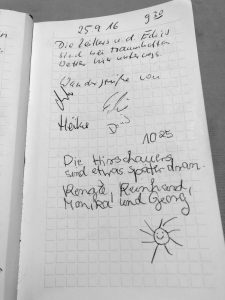 25.9.16 9 30
Die Zellers und. Eckis
sind bei traumhaften
Wetter hier unterwegs.
Wandergrüße von
Heike
10 25
Die Hirschauers
sind etwas später dran.
Renate, Reinhard,
Monika und Georg